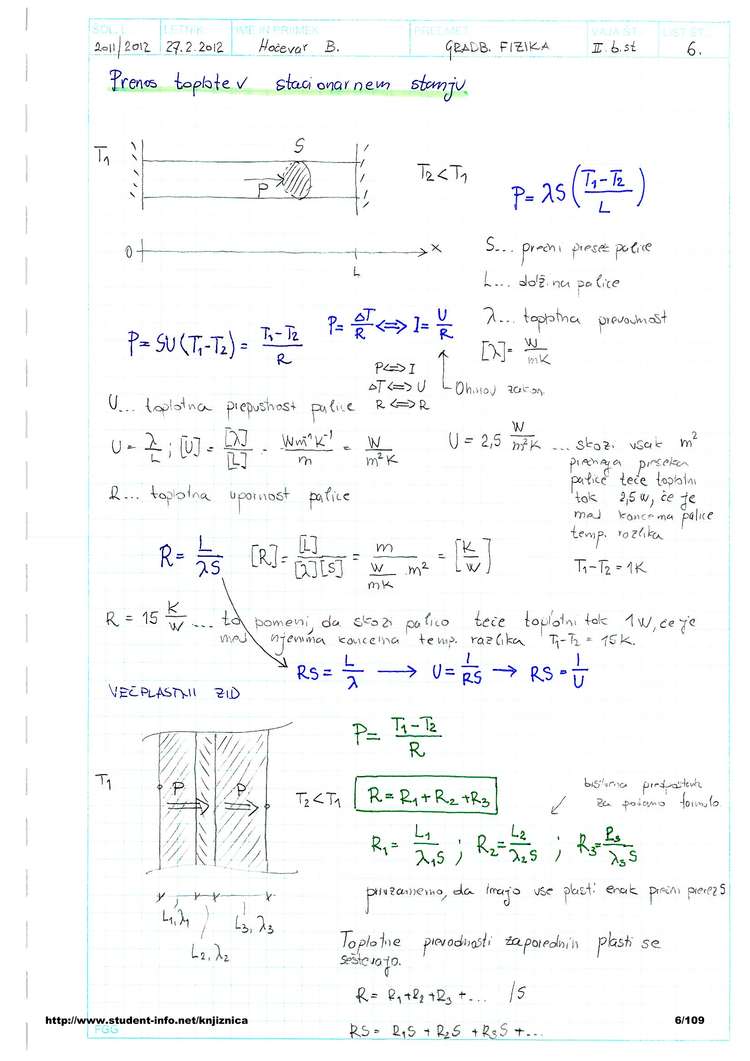 ŠOL. L. LETNIK IME IN PRIIMEK PREDMET VAJA ŠT. LIST ŠT.
2011/2012 27.2.2012 Hočevar B. GRADB. FIZIKA II. b. st 6.
Prenos toplote v stacionarnem stanju
T₁ S P T₂ < T₁ P = λS((T₁-T₂)/L)
0 L x
S... prečni presek palice
L... dolžina palice
λ... toplotna prevodnost
[λ] = W/mK
P = SU(T₁-T₂) = (T₁-T₂)/R
P = ΔT/R ⟺ I = U/R
P ⟺ I
ΔT ⟺ U
R ⟺ R
Ohmov zakon
U... toplotna prepustnost palice
U = λ/L ; [U] = [λ]/[L] = Wm⁻¹K⁻¹/m = W/m²K
U = 2,5 W/m²K ... skozi vsak m²
prečnega preseka
palice teče toplotni
tok 2,5 W, če je
med koncema palice
temp. razlika
T₁-T₂ = 1K
R... toplotna upornost palice
R = L/λS [R] = [L]/[λ][S] = m/(W/mK · m²) = [K/W]
R = 15 K/W ... to pomeni, da skozi palico teče toplotni tok 1W, če je
med njenima koncema temp. razlika T₁-T₂ = 15K.
RS = L/λ → U = 1/RS → RS = 1/U
VEČPLASTNI ZID
P = (T₁-T₂)/R
T₁ P P T₂ < T₁ R = R₁ + R₂ + R₃
bistvena predpostavka
za podano formulo
R₁ = L₁/λ₁S ; R₂ = L₂/λ₂S ; R₃ = L₃/λ₃S
privzamemo, da imajo vse plasti enak prečni prerez S
L₁, λ₁ L₃, λ₃
L₂, λ₂
Toplotne prevodnosti zaporednih plasti se
seštevajo.
R = R₁ + R₂ + R₃ + ... /S
RS = R₁S + R₂S + R₃S + ...
http://www.student-info.net/knjiznica 6/109
FGG